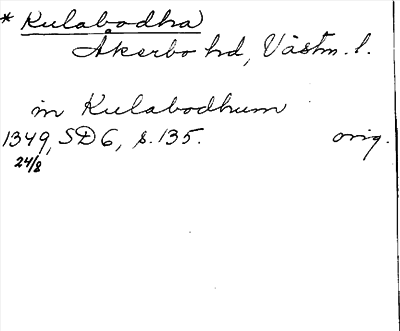 * Kulabodha
Åkerbo hd, Västm. l.
in Kulabodhum
1349, SD 6, s. 135. orig.
24/8